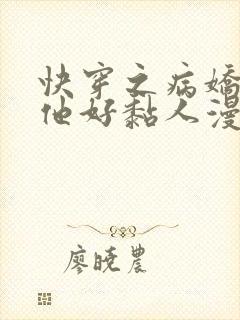 快穿之病嬌
他好黏人漫
廖曉農